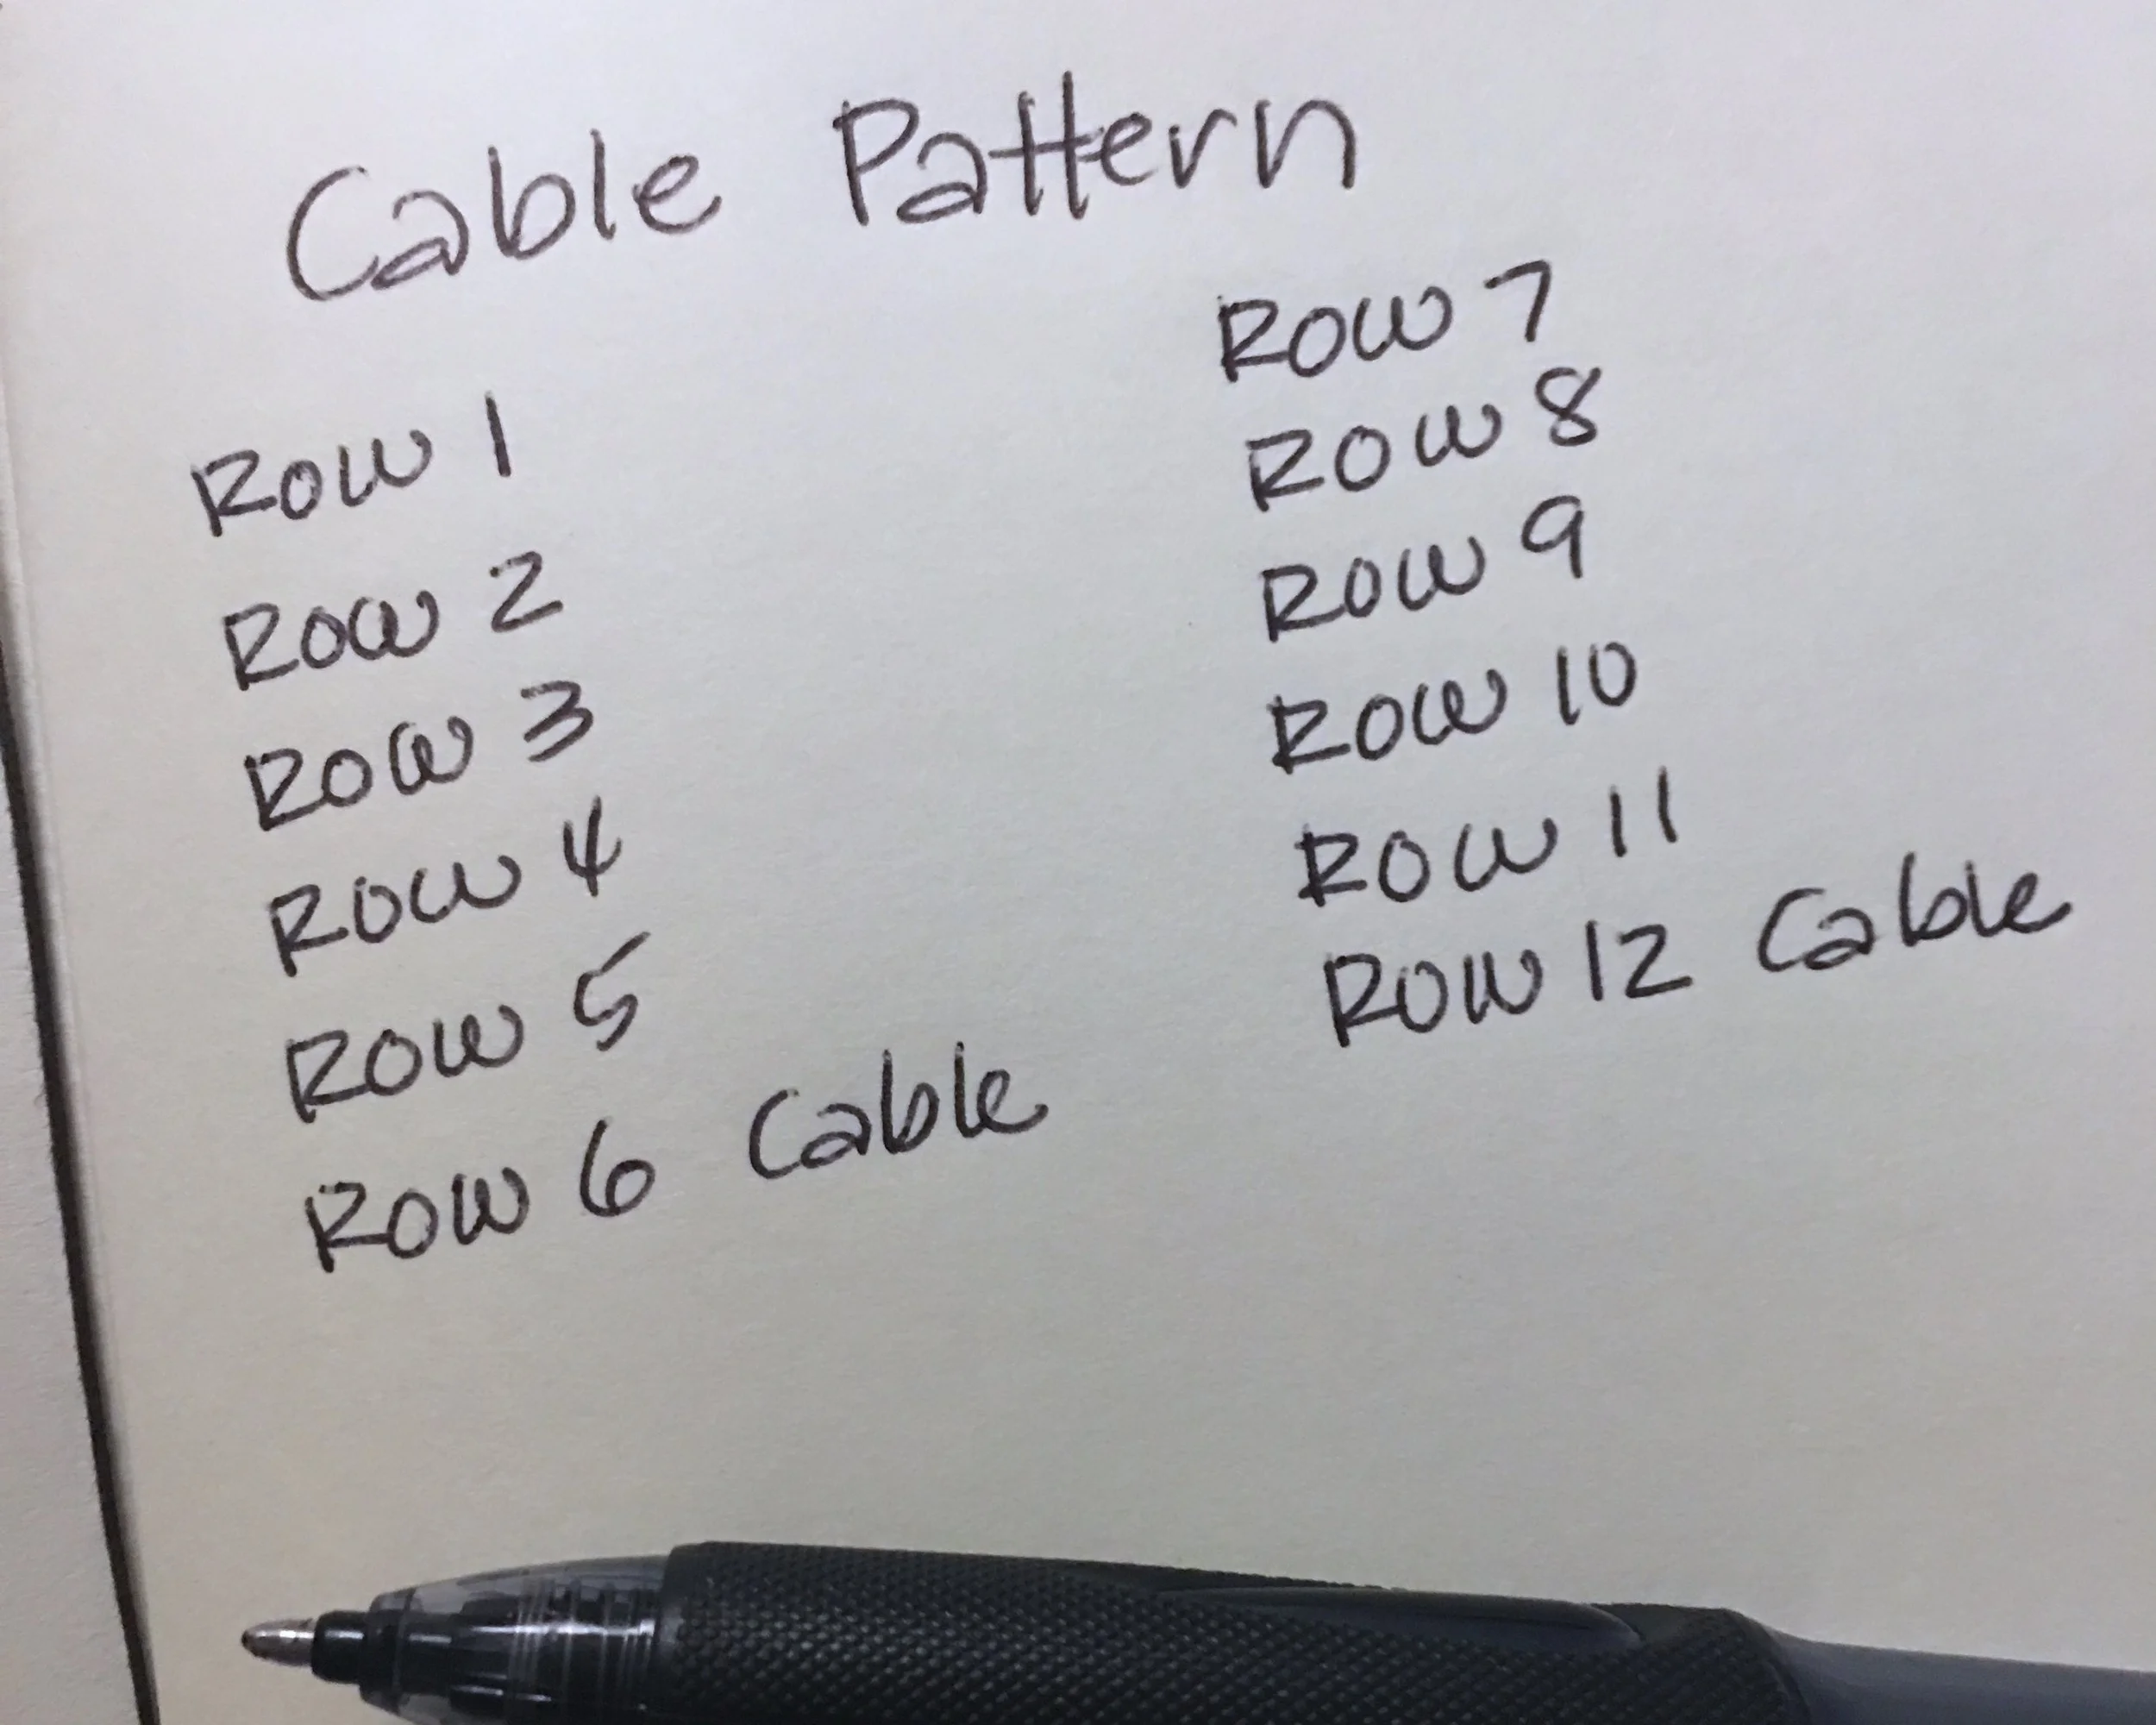 Cable Pattern
ROW 1
ROW 2
ROW 3
ROW 4
ROW 5
ROW 6 Cable
ROW 7
ROW 8
ROW 9
ROW 10
ROW 11
ROW 12 Cable